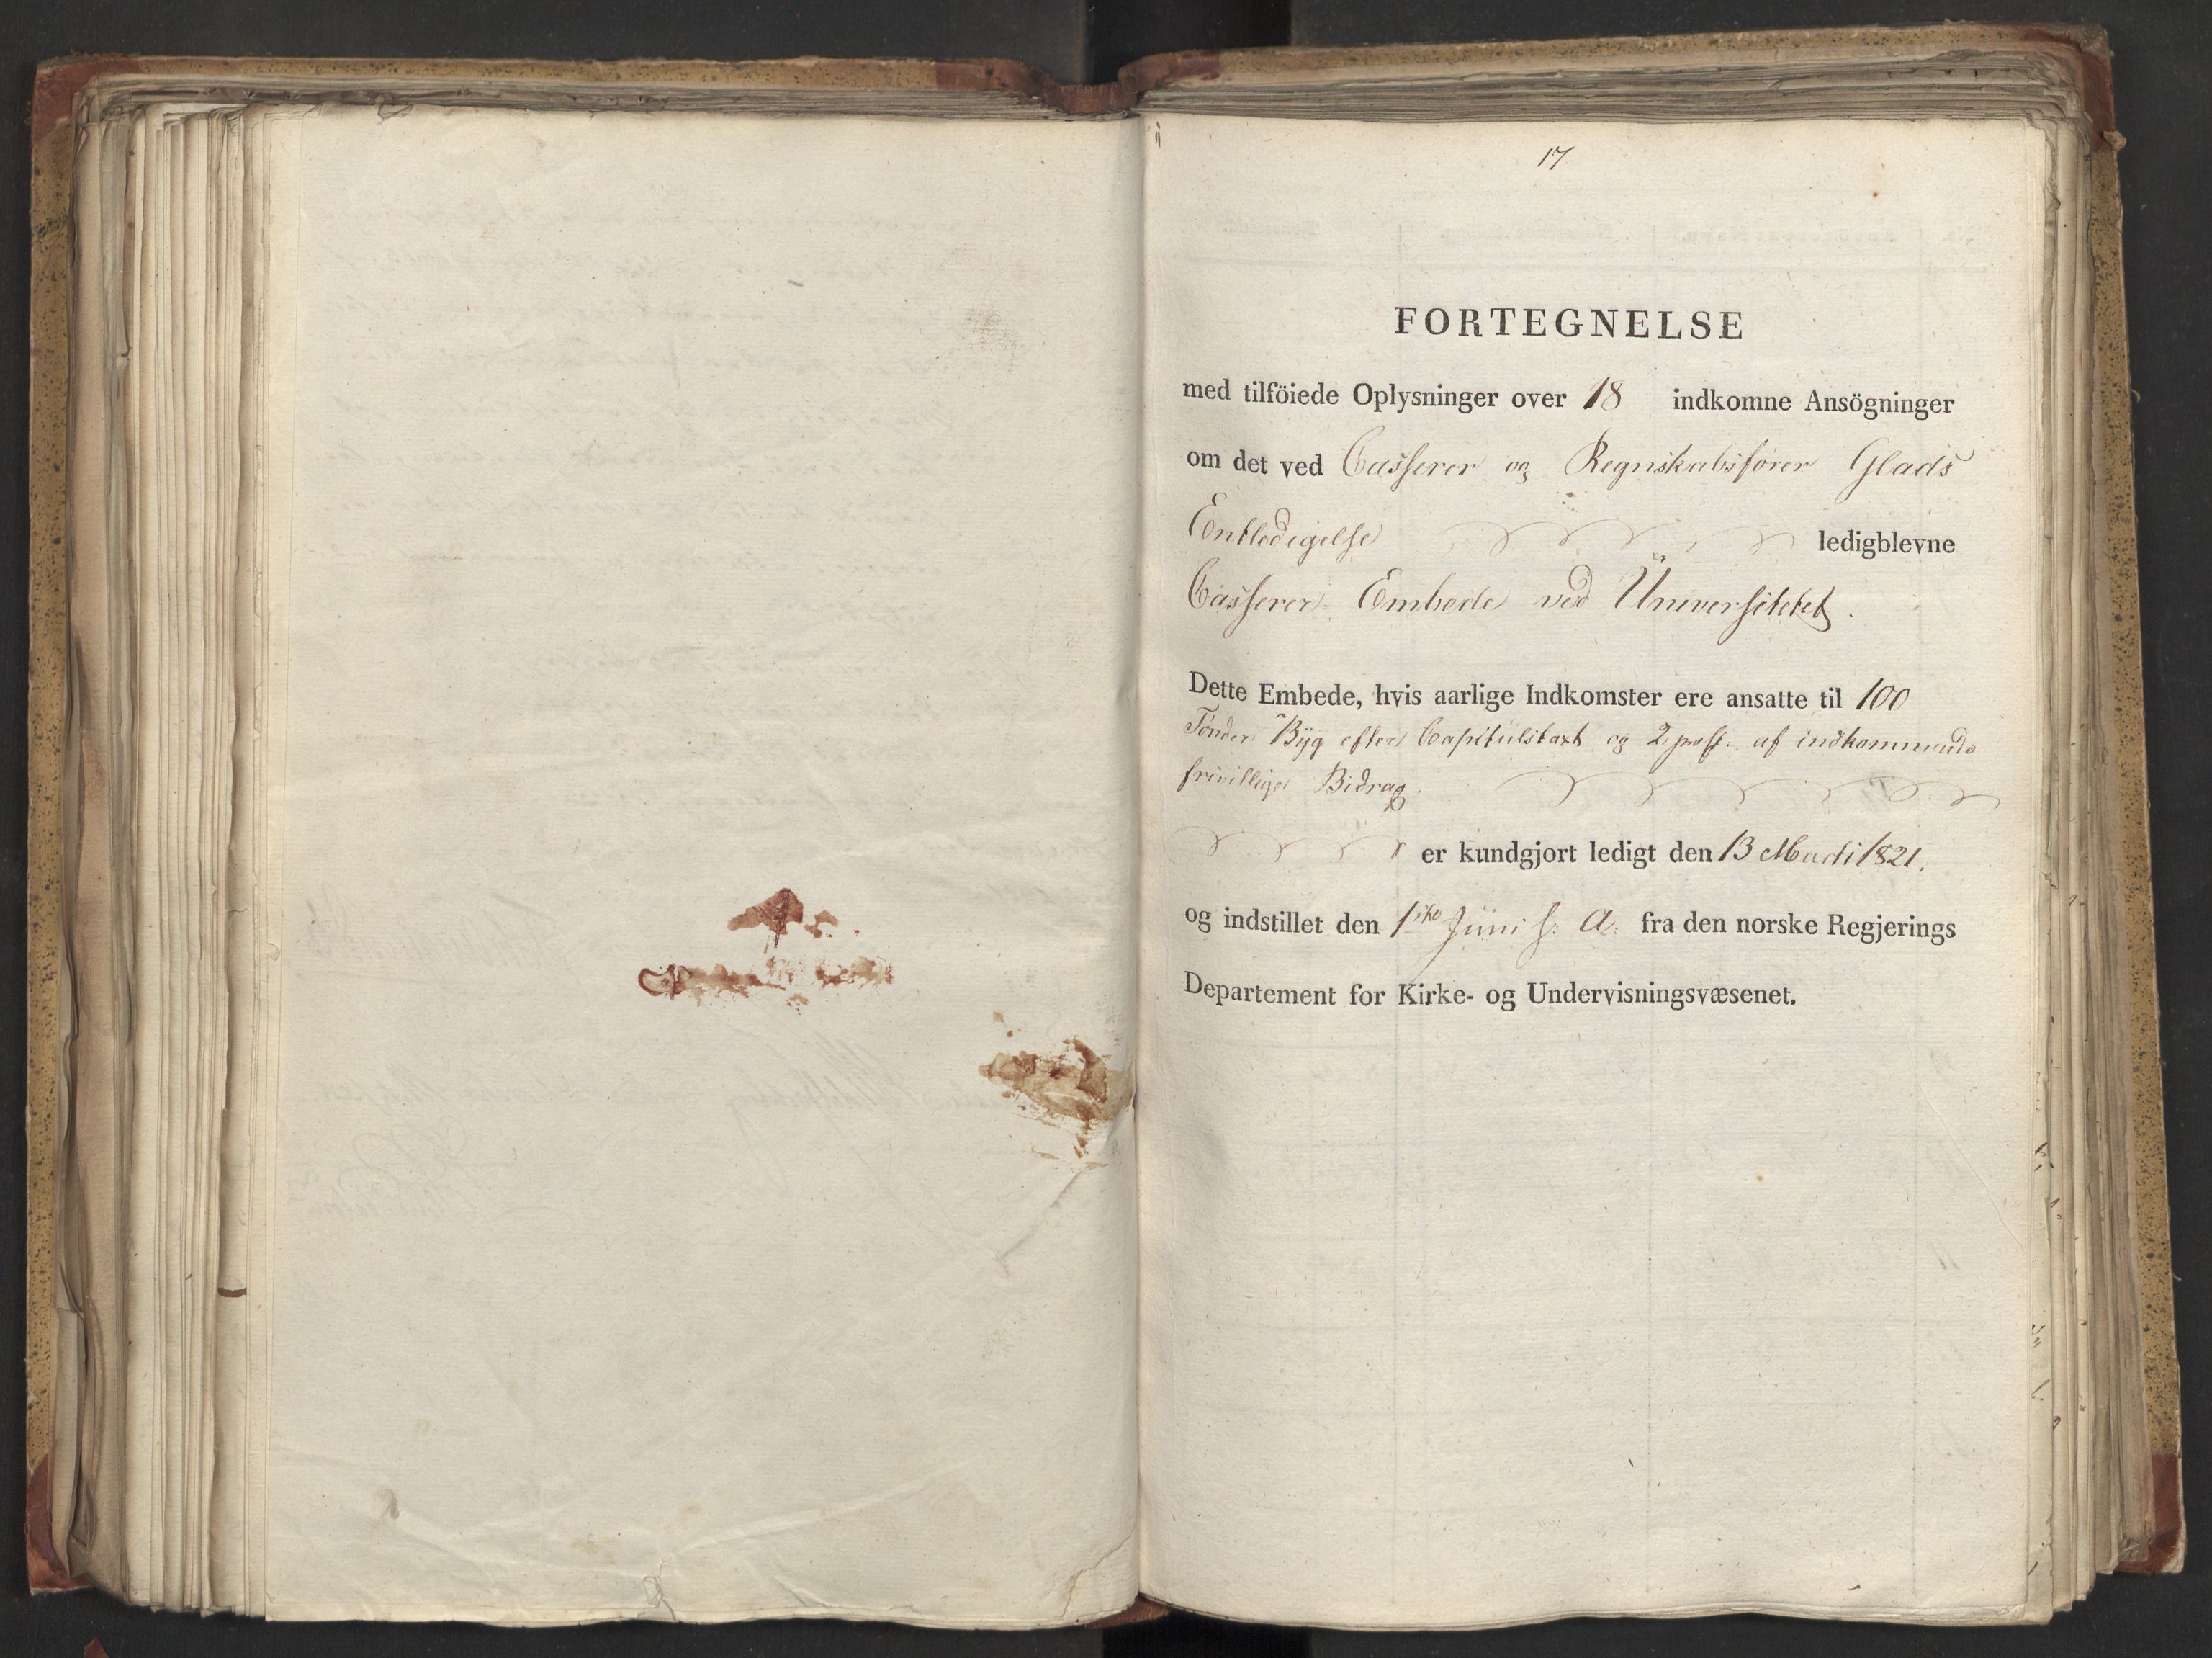 17
FORTEGNELSE
med tilföiede Oplysninger over 18 indkomne Ansögninger
om det ved Casserer og Regnskabsfører Glads
Entledigelse ledigblevne
Casserer-Embede ved Universitetet.
Dette Embede, hvis aarlige Indkomster ere ansatte til 100
Tønder Byg efter Capitulstaxt og 2 prct. af indkommende
frivillige Bidrag.
er kundgjort ledigt den 13 Marti 1821.
og indstillet den 1ste Juni s: A: fra den norske Regjerings
Departement for Kirke- og Undervisningsvæsenet.